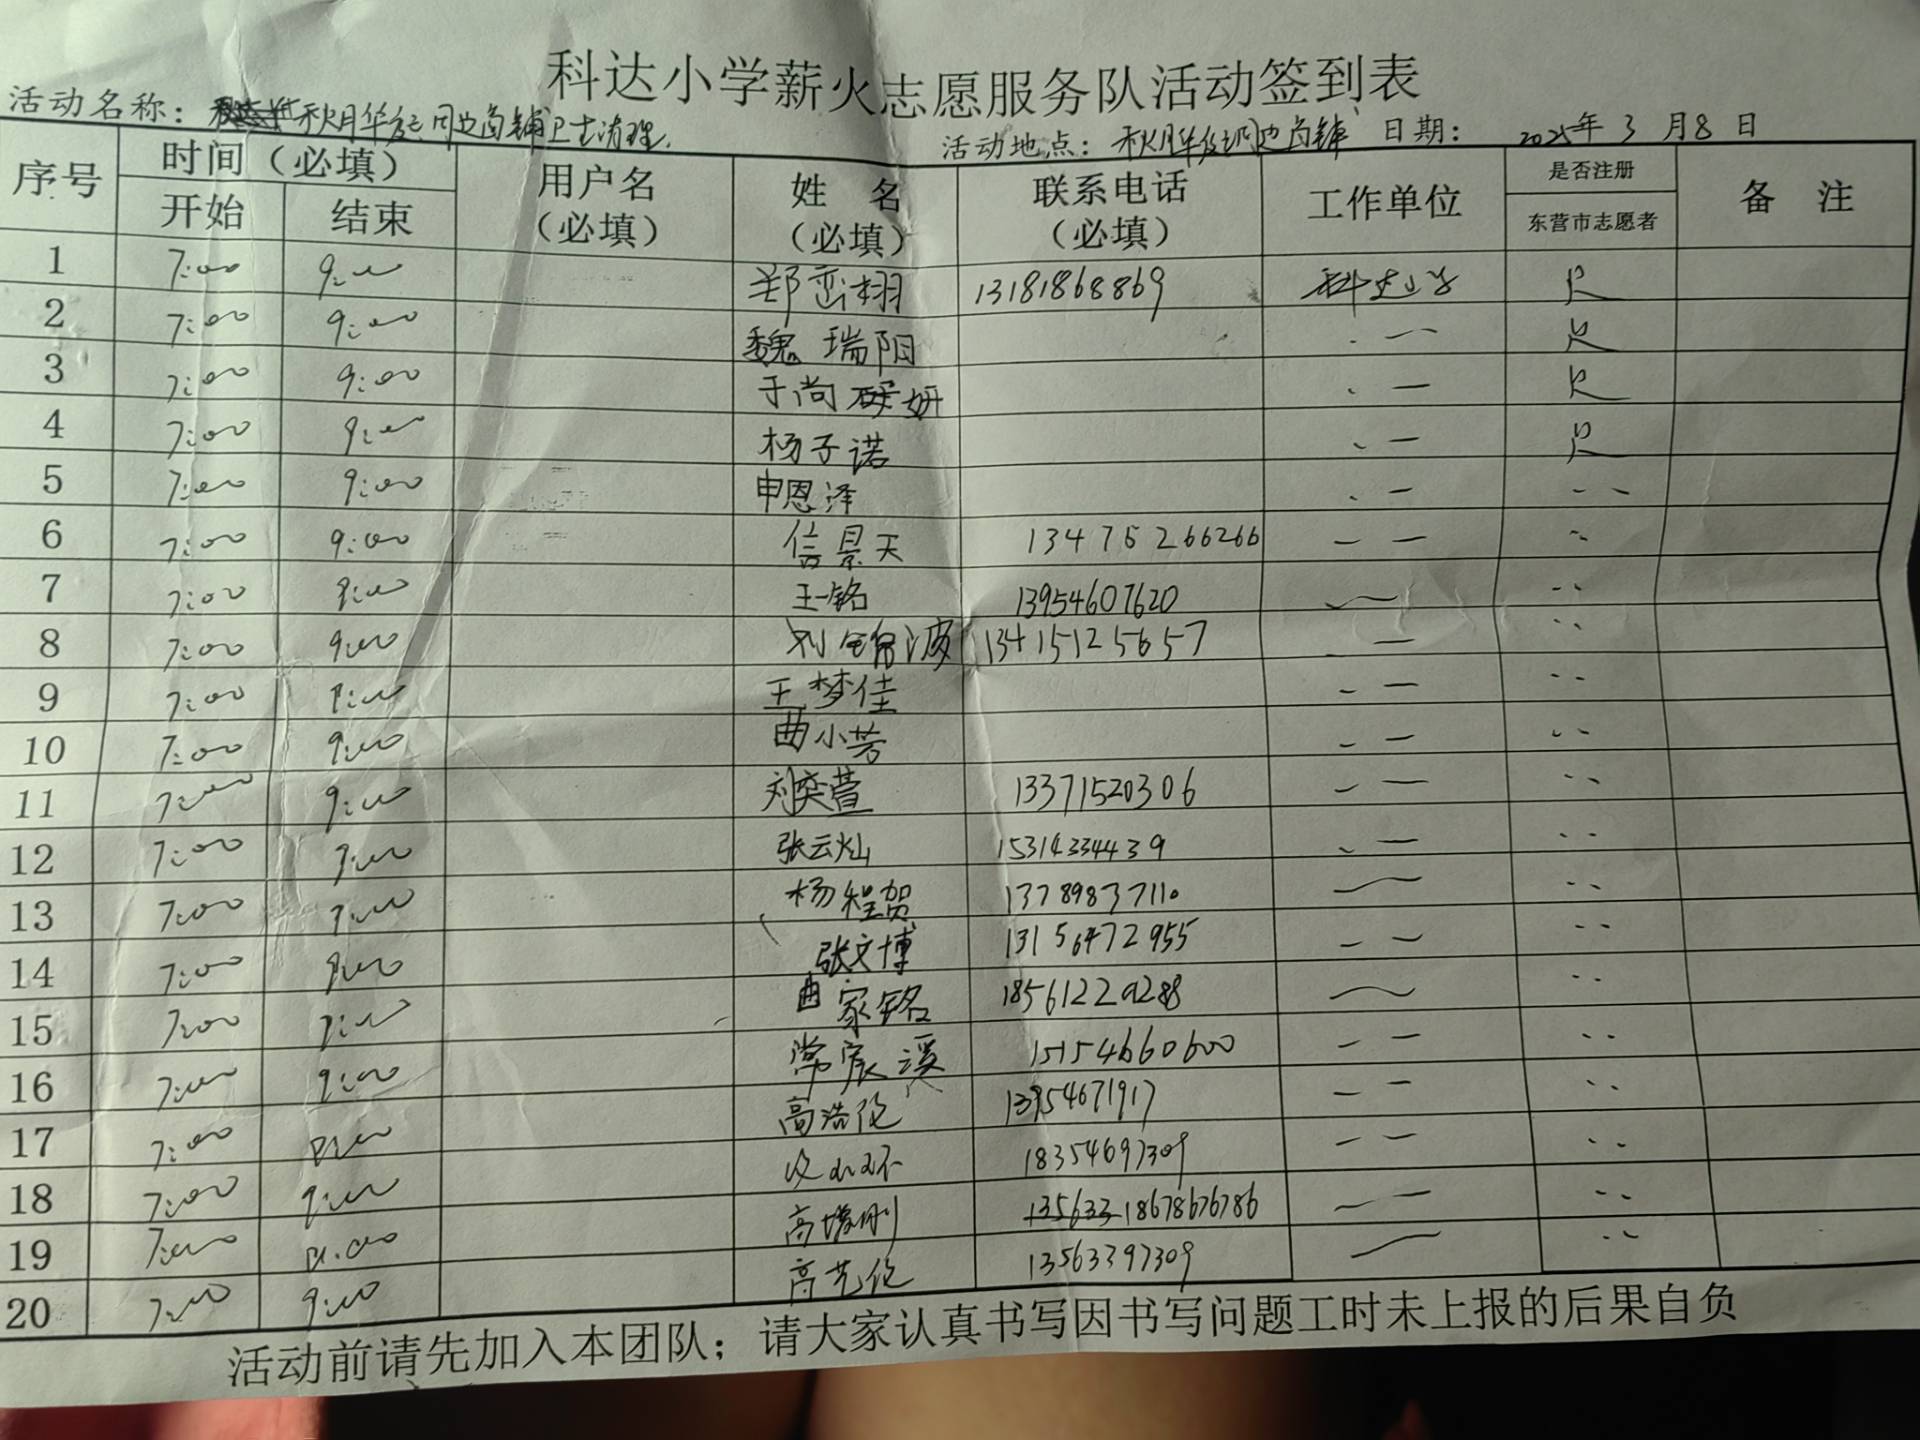 科达小学薪火志愿服务队活动签到表
活动名称： 秋月华 周边商铺卫生清理. 活动地点： 秋月华 周边商铺 日期： 2025年3月8日
序号 时间（必填） 用户名（必填） 姓 名（必填） 联系电话（必填） 工作单位 是否注册 备 注
开始 结束 东营市志愿者
1 7:00 9:00 郑 栩 13181868869 科达小学
2 7:00 9:00 魏瑞阳 . 一
3 7:00 9:00 于尚 妍 . 一
4 7:00 9:00 杨子诺 . 一
5 7:00 9:00 申恩泽 . 一
6 7:00 9:00 信景天 13475266266
7 7:00 9:00 王一铭 13954607620
8 7:00 9:00 刘锦波 13415125657
9 7:00 9:00 王梦佳
10 7:00 9:00 曲小芳
11 7:00 9:00 刘奕萱 13371520306
12 7:00 9:00 张云灿 15314334439
13 7:00 9:00 杨程贺 13789837110
14 7:00 9:00 张文博 13156472955
15 7:00 9:00 曲家铭 18561229288
16 7:00 9:00 常宸溪 15154660600
17 7:00 9:00 高浩伦 13954671917
18 7:00 9:00 18354697309
19 7:00 9:00 高 刚 18678676786
20 7:00 9:00 高艺伦 13563397309
活动前请先加入本团队；请大家认真书写因书写问题工时未上报的后果自负